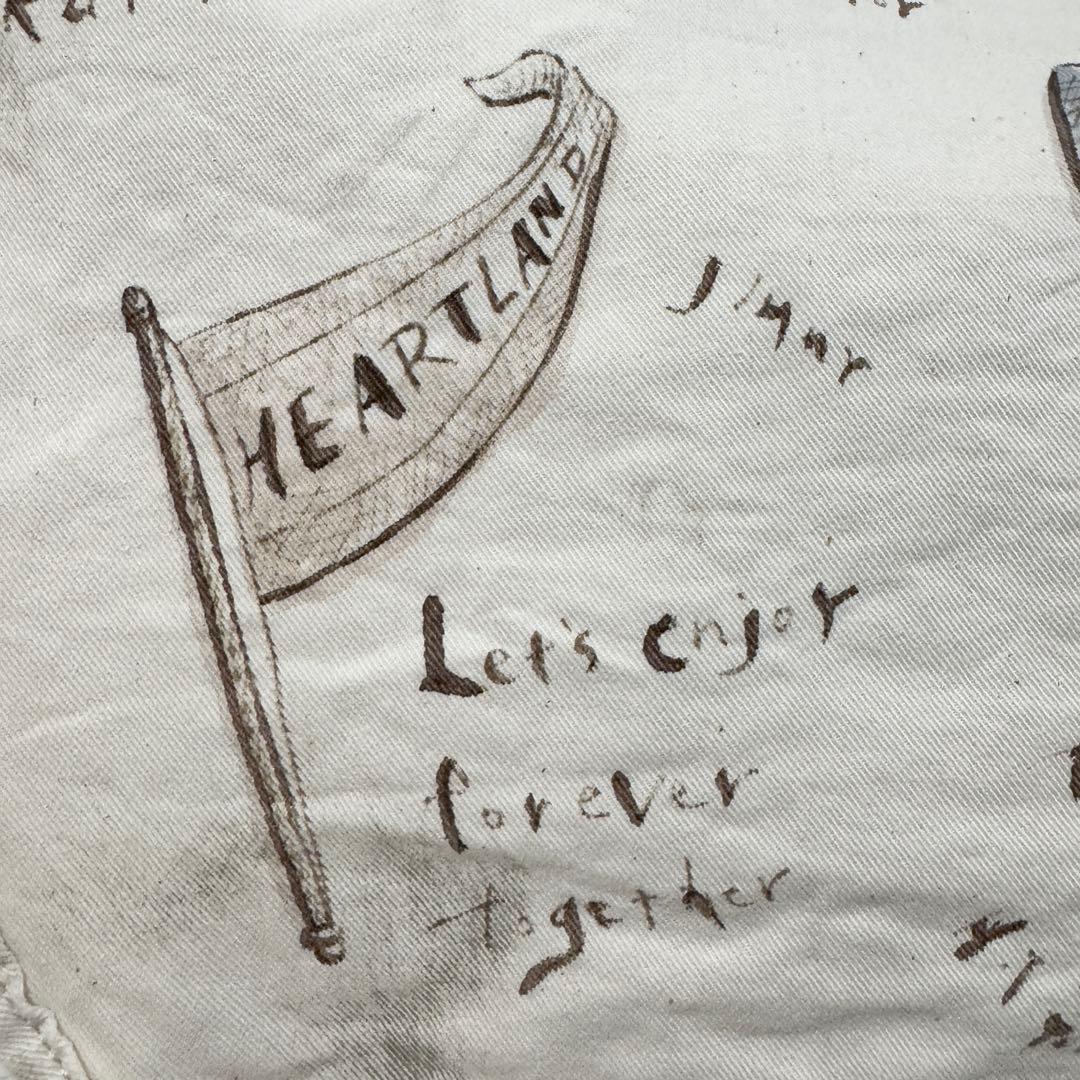 HEARTLAND
Jimmy
Let's enjoy
forever
together